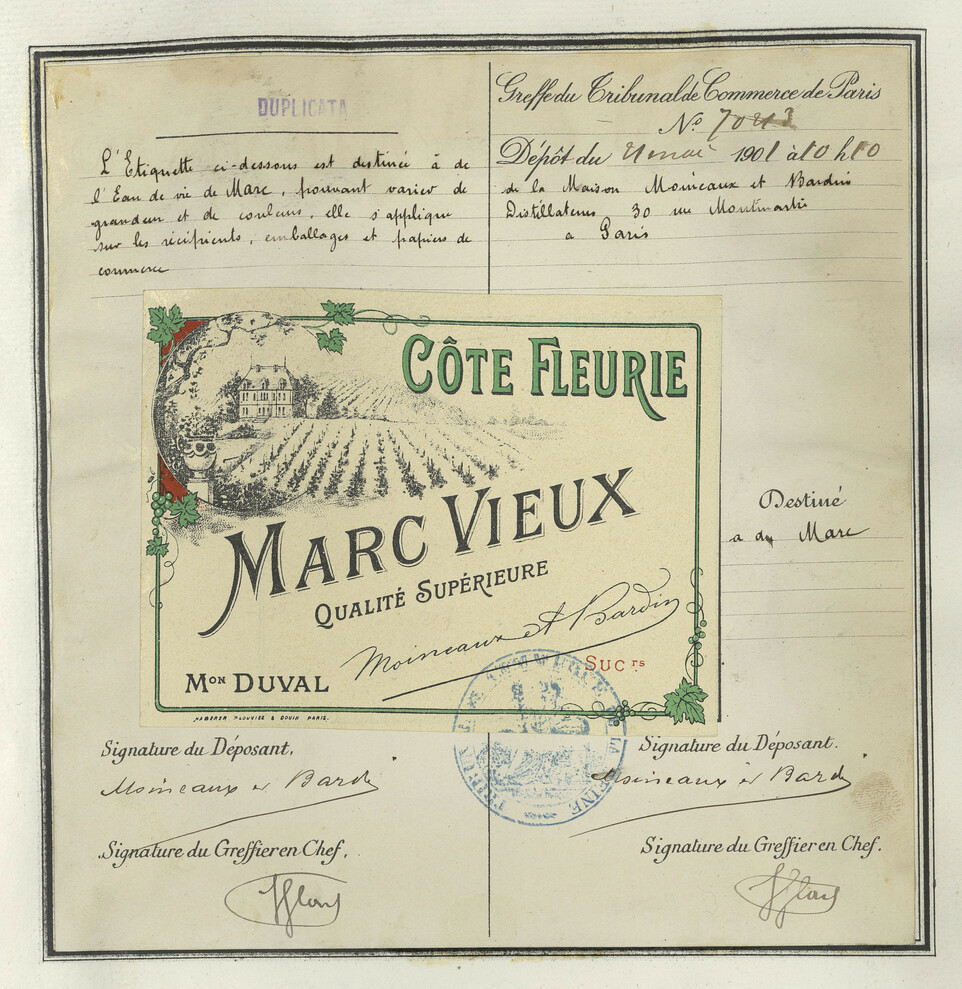 DUPLICATA
L'Etiquette ci-dessous est destinée à de
l'Eau de vie de Marc, pouvant varier de
grandeur et de couleurs, elle s'applique
sur les récipients, emballages et papiers de
commerce
Greffe du Tribunal de Commerce de Paris
No 7043
Dépôt du mai 1901 à 10 h 10
de la Maison Moineaux et Bardin
Distillateurs 30 rue Montmartre
a Paris
CÔTE FLEURIE
MARC VIEUX
QUALITÉ SUPÉRIEURE
Moineaux et Bardin
SUCrs
Mon DUVAL
& GOUIN PARIS.
Destiné
a du Marc
Signature du Déposant,
Moineaux et Bardin
Signature du Greffier en Chef,
Signature du Déposant.
Moineaux et Bardin
Signature du Greffier en Chef.